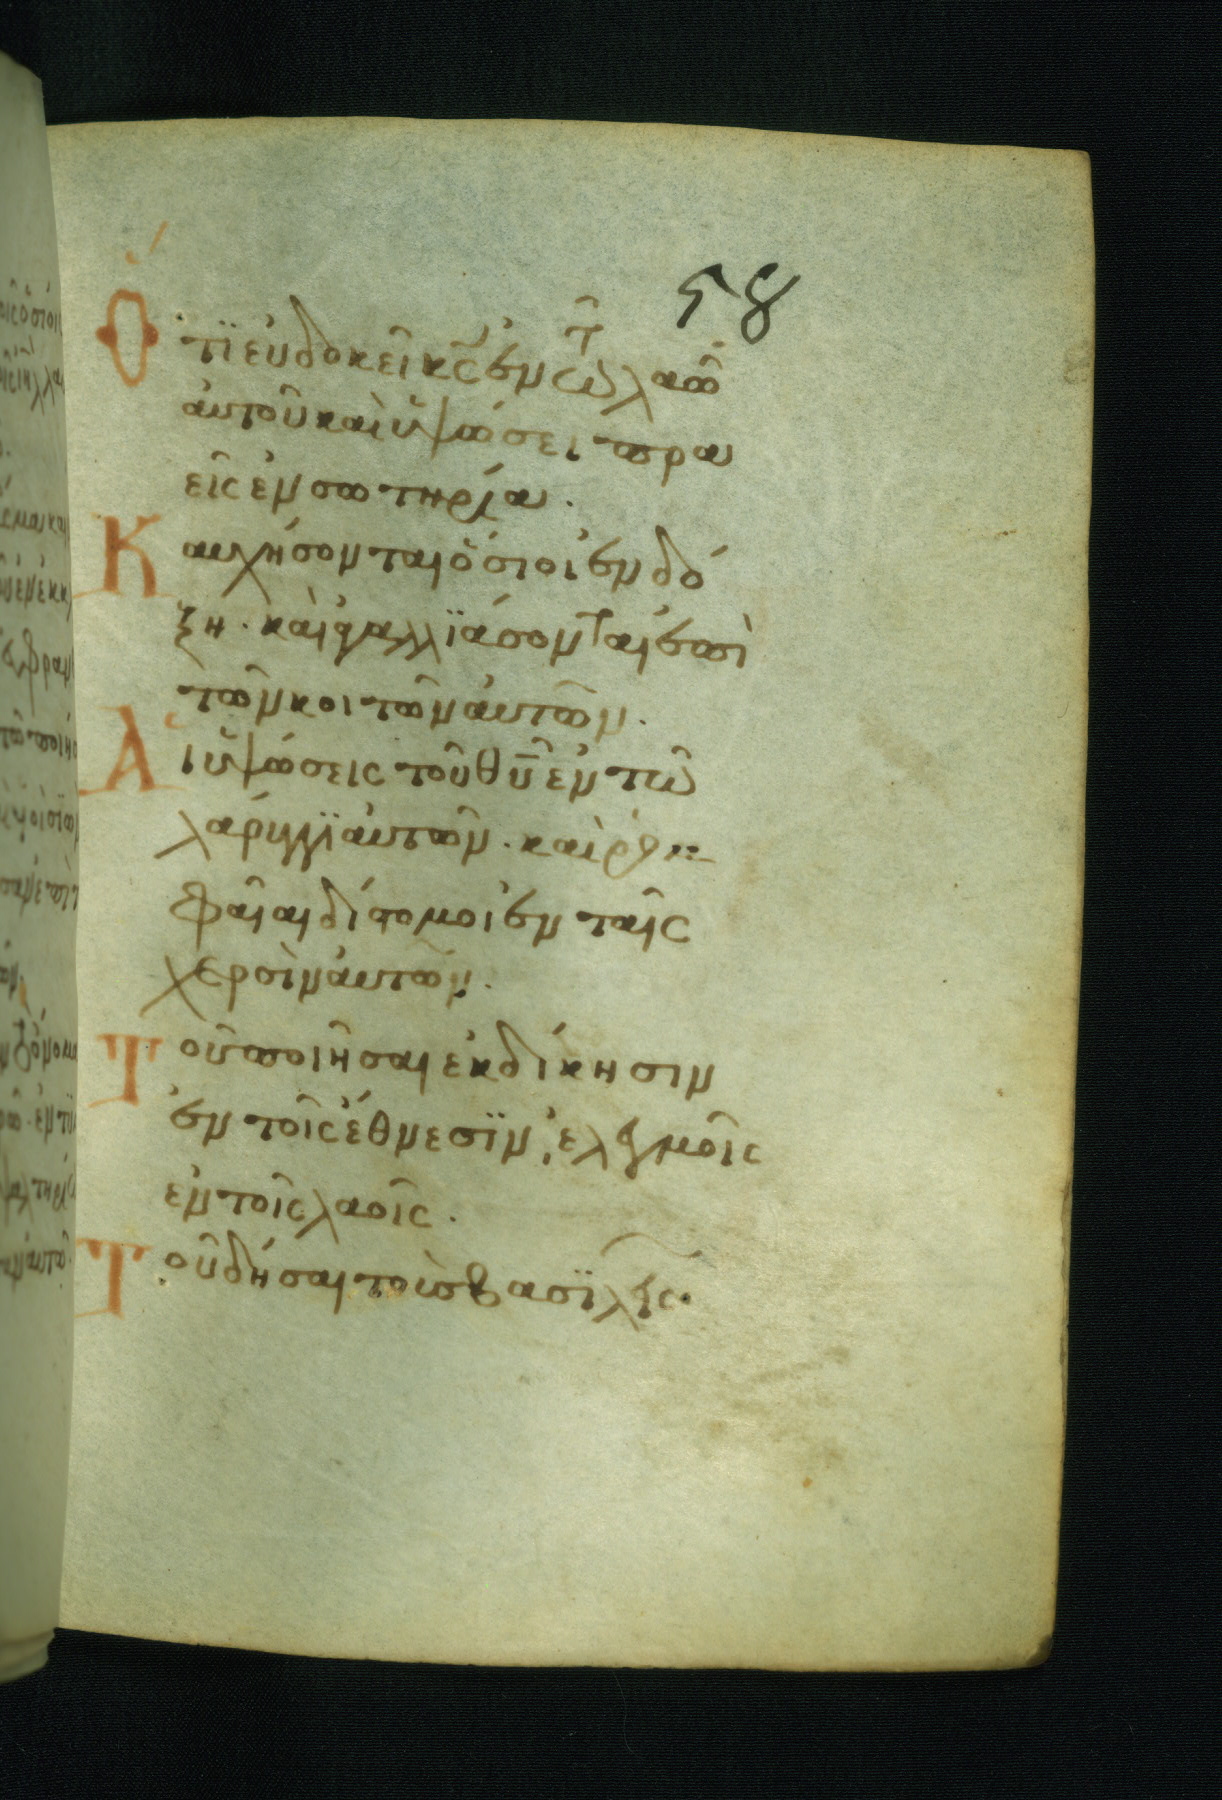 58
Ὅτϊ εὐδοκεῖ κ̅ς̅ ἐν τῶ λαῶ
ἀυτοῦ καὶ ὑψώσει πρα
εῖς ἐν σωτηρία.
Καυχήσονται ὅσιοι ἐν δό
ξη. καὶ ἀγαλλϊάσονται ἐπὶ
τῶν κοιτῶν ἀυτῶν.
Ἁι ὑψώσεις τοῦ θυ̅ ἐν τῶ
λάρυγγϊ ἀυτῶν. καὶ ῥομ
φαῖαι δίστομοι ἐν ταῖς
χερσὶν ἀυτῶν.
Τοῦ ποιῆσαι ἐκδίκησιν
ἐν τοῖς ἔθνεσϊν, ἐλεγμοῖς
ἐν τοῖς λαοῖς.
Τοῦ δῆσαι τοὺσ βασϊλεῖς